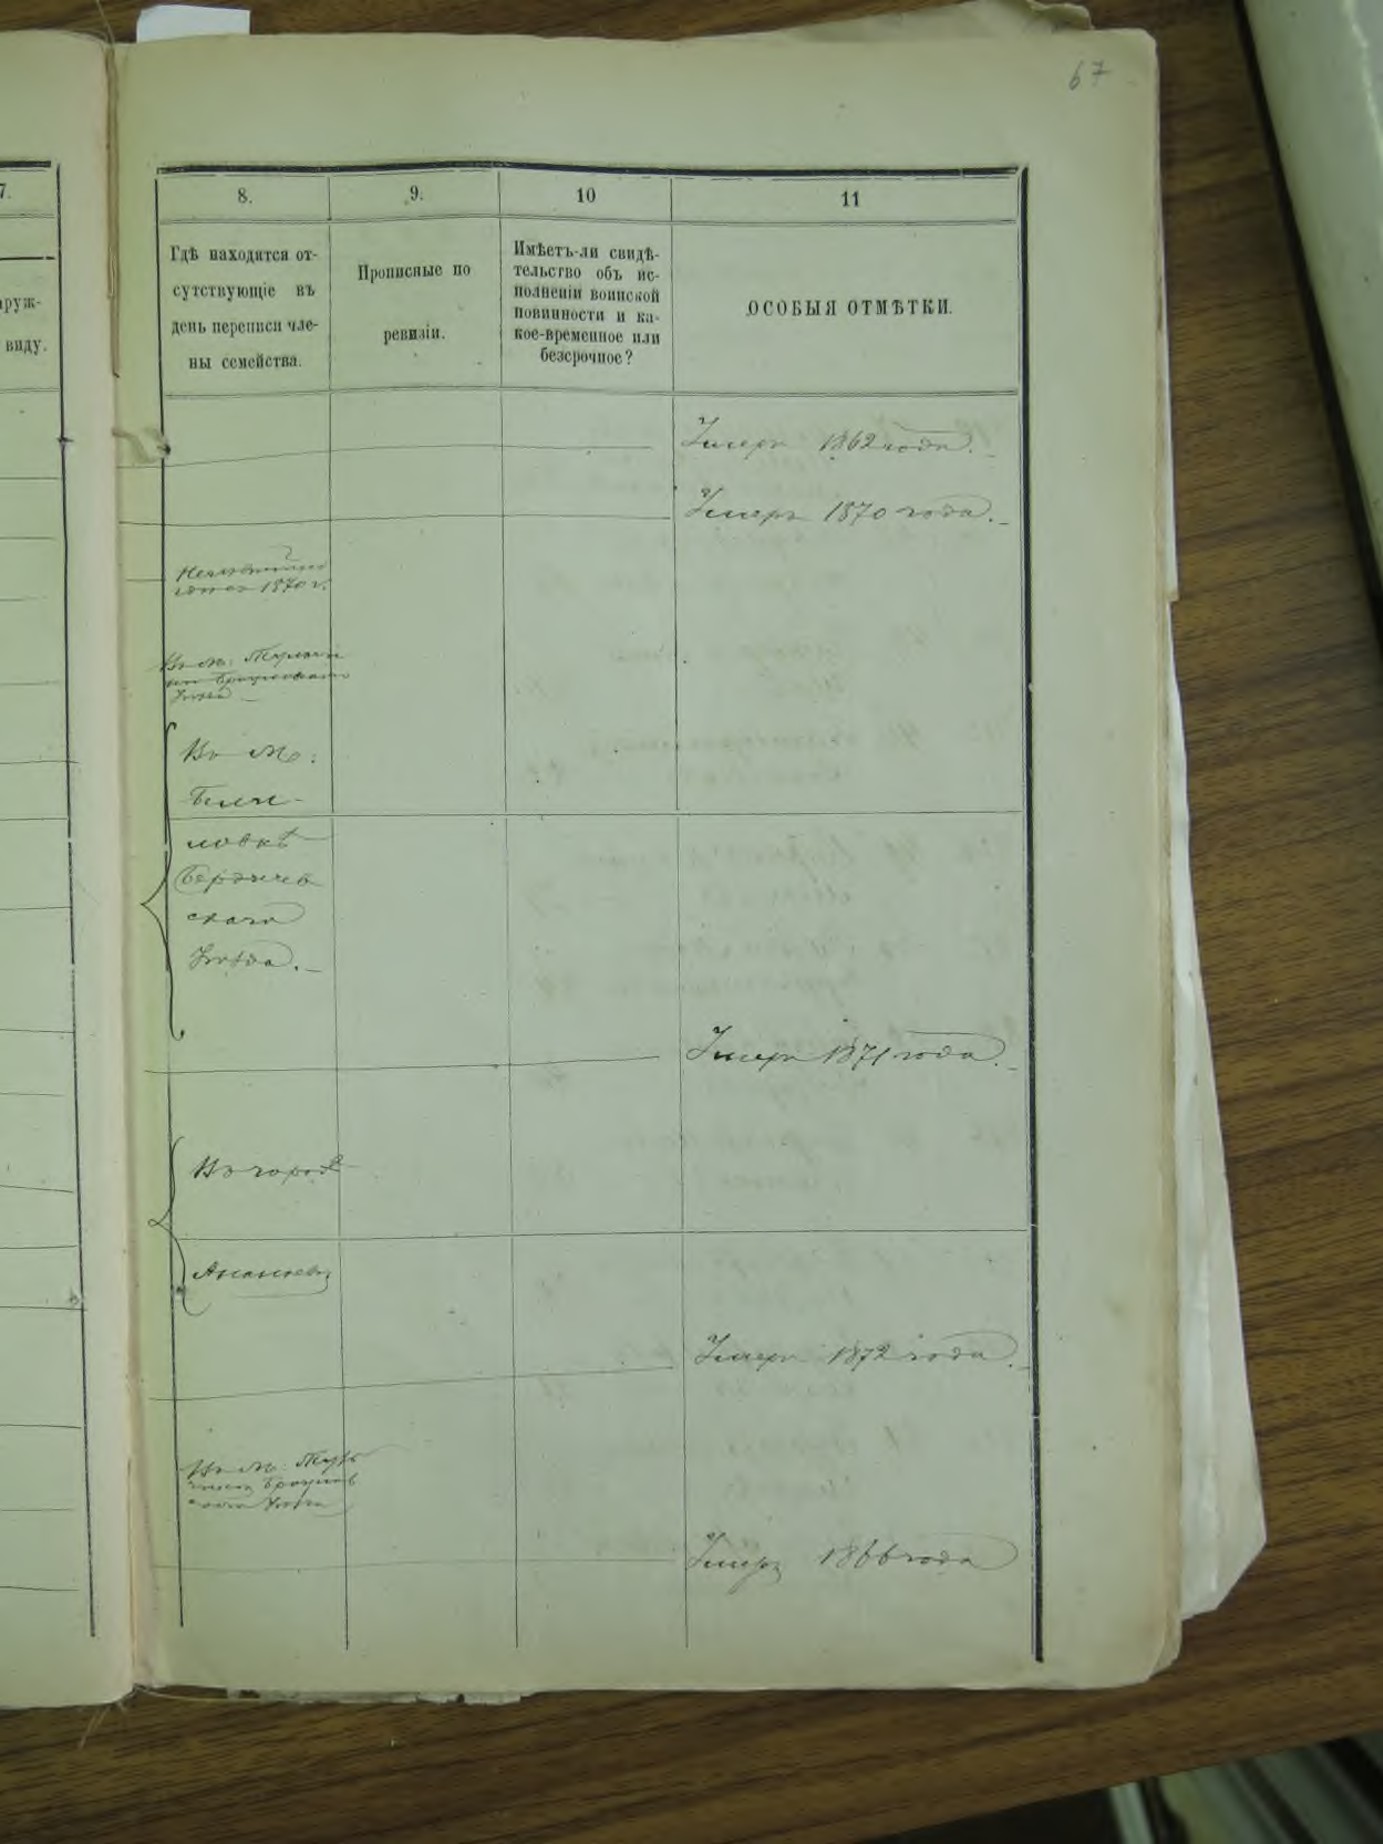 67
7.
8.
9.
10
11
аруж-
виду.
Гдѣ находятся от-
сутствующіе въ
день переписи чле-
ны семейства.
Прописные по
ревизіи.
Имѣетъ-ли свидѣ-
тельство объ ис-
полненіи воинской
повинности и ка-
кое-временное или
безсрочное?
ОСОБЫЯ ОТМѢТКИ.
Умеръ 1862 года.
Умеръ 1870 года.
1870 г.
Въ м:
уѣзда
Въ м:
Били-
ловкѣ
Бердичев
скаго
Уѣзда.
Умеръ 1871 года.
Въ городѣ
Ананьевѣ
Умеръ 1872 года.
Въ м:
Умеръ 1866 года